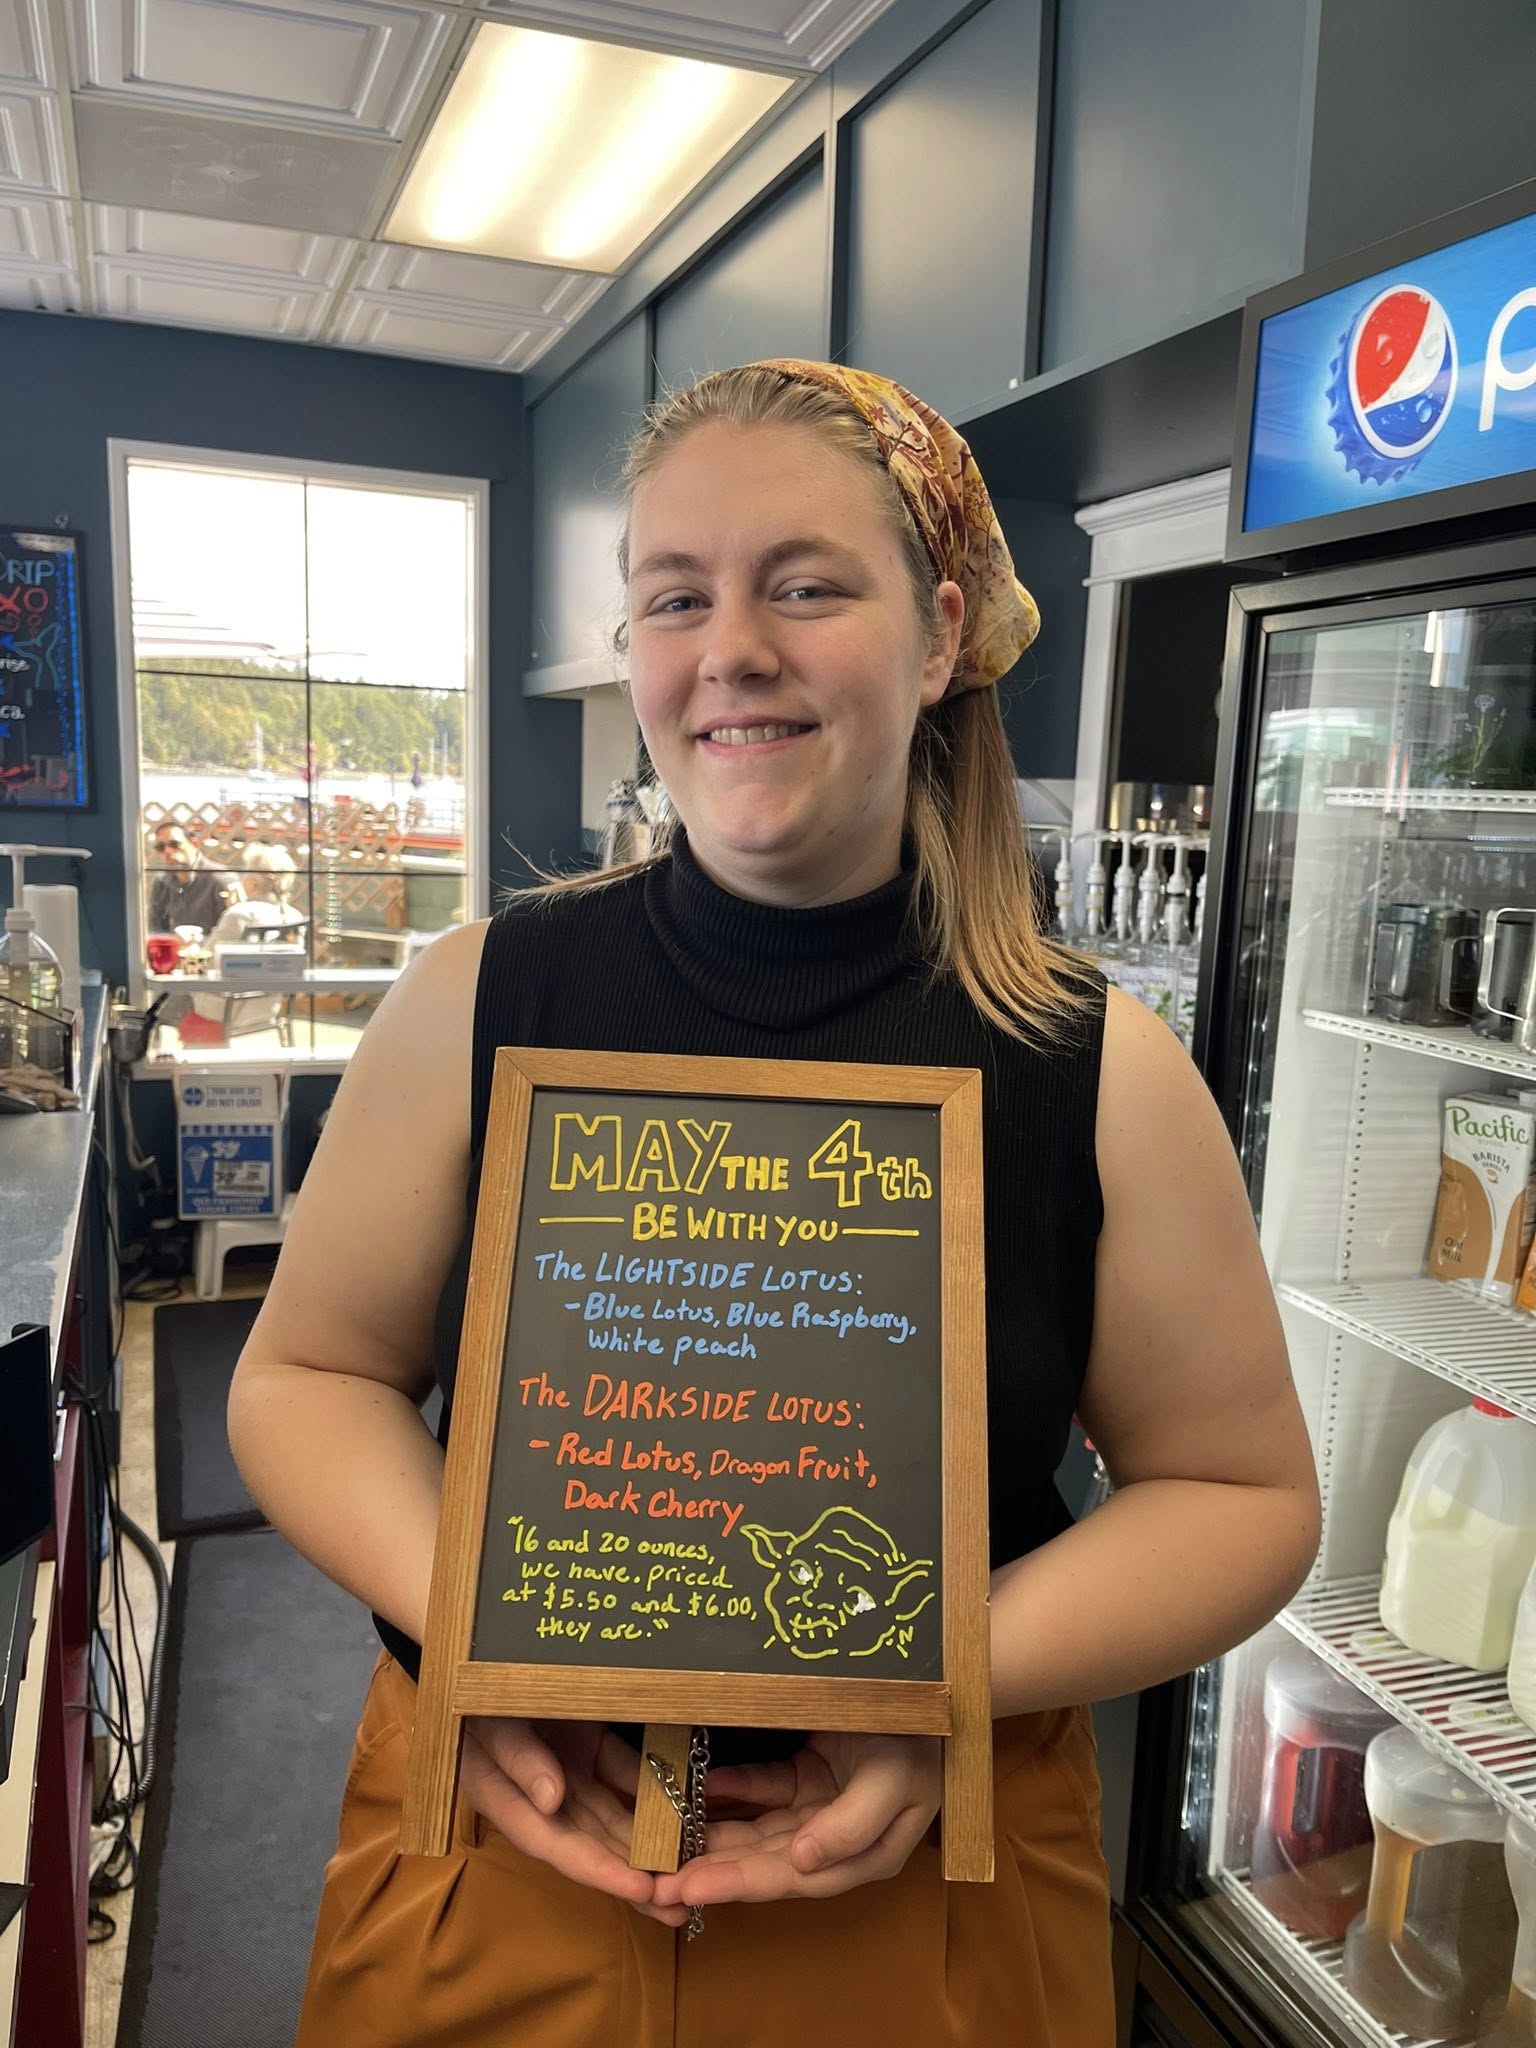 MAY THE 4th
BE WITH YOU
The LIGHTSIDE LOTUS:
- Blue Lotus, Blue Raspberry,
White peach
The DARKSIDE LOTUS:
- Red Lotus, Dragon Fruit,
Dark Cherry
"16 and 20 ounces,
we have. priced
at $5.50 and $6.00,
they are."
DRIP
XO
rise
ca.
DO NOT CRUSH
OLD FASHIONED
SUGAR CONES
p
Pacific
BARISTA
SERIES
Oat
Milk